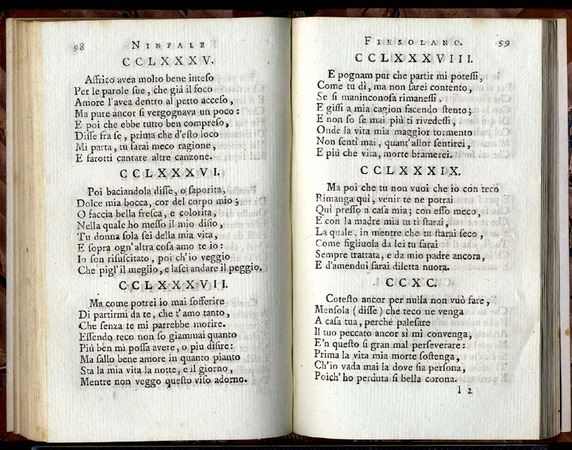 98 NINFALE
CCLXXXV.
Affrico avea molto bene inteso
Per le parole sue, che già il foco
Amore l'avea dentro al petto acceso,
Ma pure ancor si vergognava un poco:
E poi che ebbe tutto ben compreso,
Disse fra se, prima che d'esto loco
Mi parta, tu farai meco ragione,
E farotti cantare altre canzone.
CCLXXXVI.
Poi baciandola disse, o saporita,
Dolce mia bocca, cor del corpo mio;
O faccia bella fresca, e colorita,
Nella quale ho messo il mio disio,
Tu donna sola sei della mia vita,
E sopra ogn'altra cosa amo te io:
Io son risuscitato, poi ch'io veggio
Che pigl'il meglio, e lasci andare il peggio.
CCLXXXVII.
Ma come potrei io mai sofferire
Di partirmi da te, che t'amo tanto,
Che senza te mi parrebbe morire.
Essendo teco non so giammai quanto
Più ben mi possa avere, o più disire:
Ma sallo bene amore in quanto pianto
Sta la mia vita la notte, e il giorno,
Mentre non veggo questo viso adorno.
FIESOLANO. 99
CCLXXXVIII.
E pognam pur che partir mi potessi,
Come tu dì, ma non sarei contento,
Se sì maninconosa rimanessi,
E gissi a mia cagion facendo stento;
E non so se mai più ti rivedessi,
Onde la vita mia maggior tormento
Non sentì mai, quant'allor sentirei,
E più che vita, morte bramerei.
CCLXXXIX.
Ma poi che tu non vuoi che io con teco
Rimanga qui, venir te ne potrai
Qui presso a casa mia; con esso meco,
E con la madre mia tu ti starai,
La quale, in mentre che tu starai seco,
Come figliuola da lei tu sarai
Sempre trattata, e da mio padre ancora,
E d'amendui sarai diletta nuora.
CCXC.
Cotesto ancor per nulla non vuò fare,
Mensola (disse) che teco ne venga
A casa tua, perchè palesare
Il tuo peccato ancor si mi convenga,
E'n questo sì gran mal perseverare:
Prima la vita mia morte sostenga,
Ch'io vada mai la dove sia persona,
Poich'ho perduta sì bella corona.
I 2